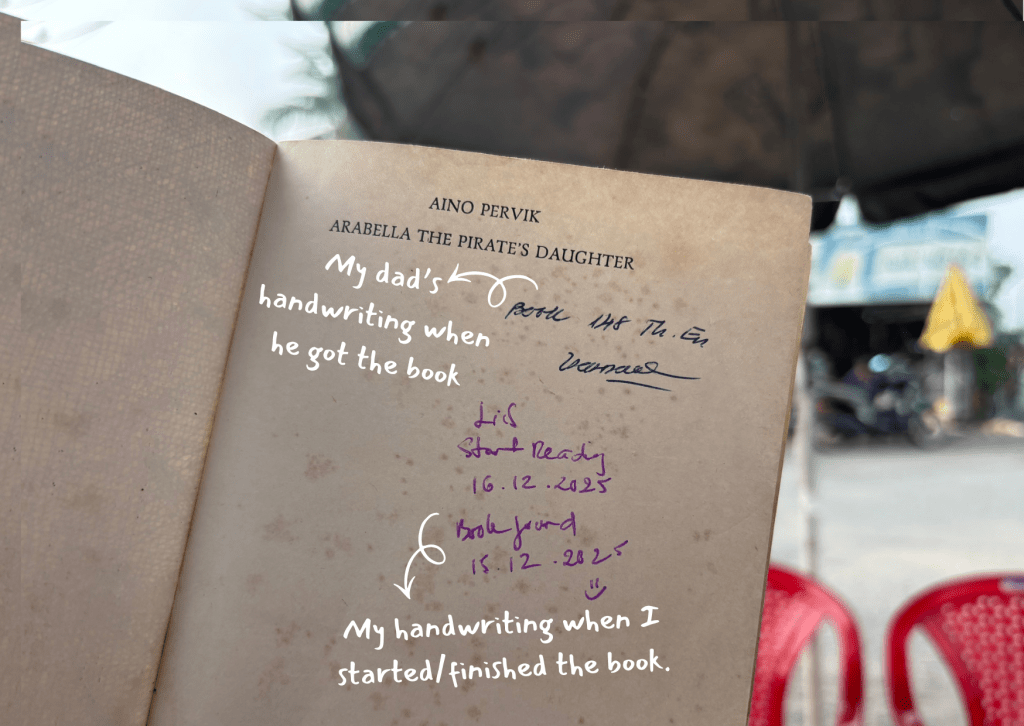 AINO PERVIK
ARABELLA THE PIRATE'S DAUGHTER
My dad's
handwriting when
he got the book
Book 148 Th. En
Start Reading
16.12.2025
Book found
15.12.2025
My handwriting when I
started/finished the book.